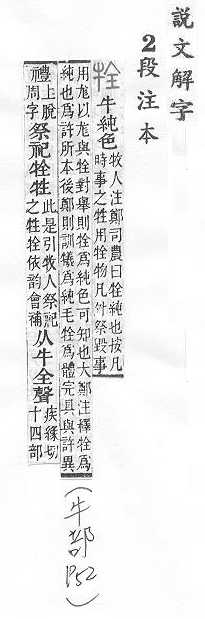 說文解字
2段注本
牷
牛純色
牧人注鄭司農曰牷純也按凡
時事之牲用牷物凡外祭毀事
用尨以尨與牷對舉則牷爲純色可知也大鄭注釋牷爲
純也爲許所本後鄭則訓犧爲純毛牷爲體完具與許異
禮上脫
禮周字
祭祀牷牲
此是引牧人祭祀
之牲牷依韻會補
从牛全聲
疾緣切
十四部
(牛部P52)